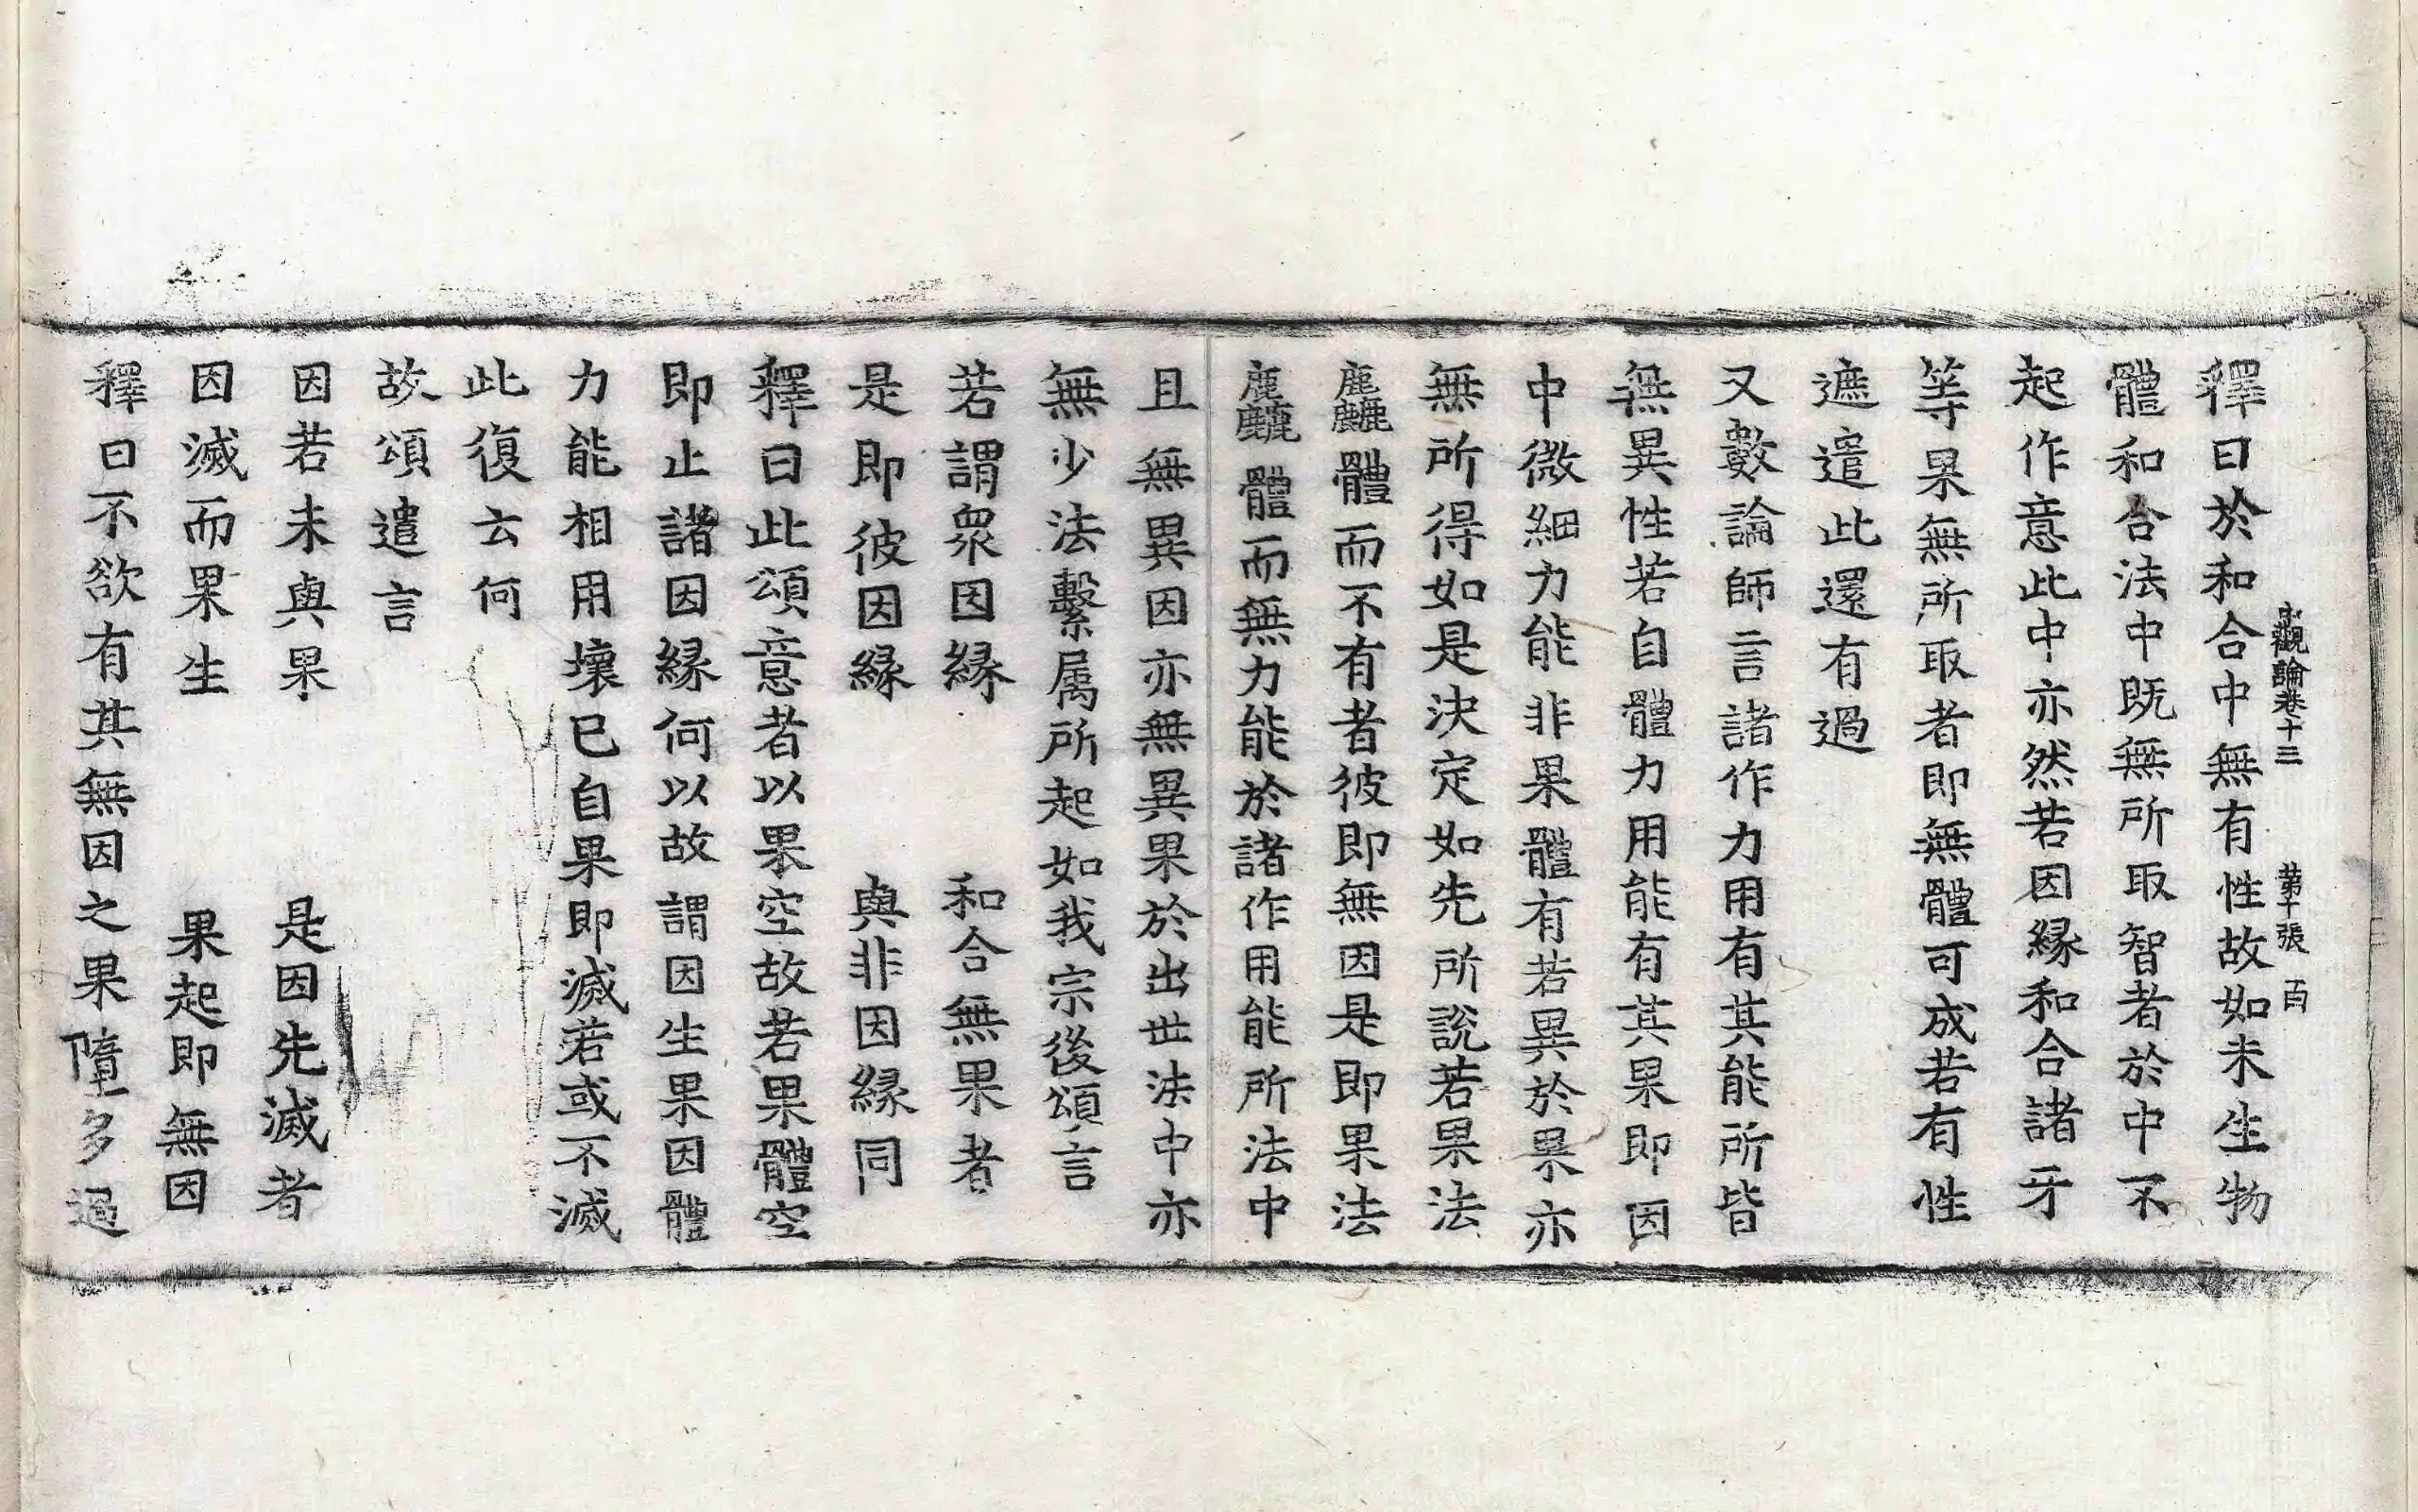 中觀論卷十三 第十張 百
釋曰於和合中無有性故如未生物
體和合法中既無所取智者於中不
起作意此中亦然若因縁和合諸牙
等果無所取者即無體可成若有性
遮遣此還有過
又數論師言諸作力用有其能所皆
無異性若自體力用能有其果即因
中微細力能非果體有若異於果亦
無所得如是決定如先所說若果法
麤體而不有者彼即無因是即果法
麤體而無力能於諸作用能所法中
且無異因亦無異果於出世法中亦
無少法繫属所起如我宗後頌言
若謂衆因縁 和合無果者
是即彼因縁 與非因縁同
釋曰此頌意者以果空故若果體空
即止諸因縁何以故謂因生果因體
力能相用壞已自果即滅若或不滅
此復云何
故頌遣言
因若未與果 是因先滅者
因滅而果生 果起即無因
釋曰不欲有其無因之果墮多過